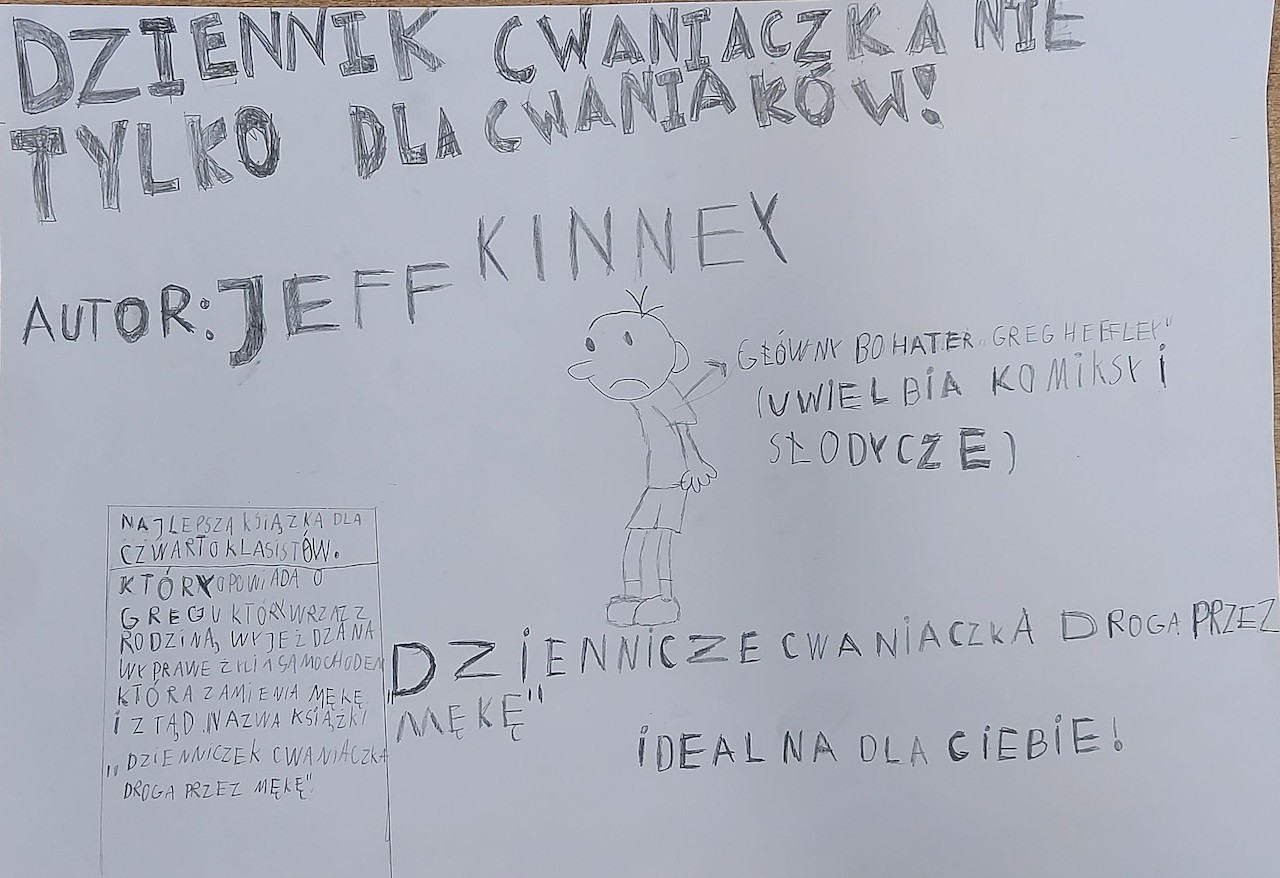 DZIENNIK CWANIACZKA NIE
TYLKO DLA CWANIAKÓW!
AUTOR: JEFF KINNEY
GŁÓWNY BOHATER „GREG HEFFLEY"
(UWIELBIA KOMIKSY I
SŁODYCZE)
NAJLEPSZA KSIĄŻKA DLA
CZWARTOKLASISTÓW.
KTÓRY OPOWIADA O
GREGU KTÓRY WRZAZ Z
RODZINĄ, WYJEŻDZA NA
WYPRAWE ŻYCIA SAMOCHODEM
KTÓRA ZAMIENIA MĘKĘ
I ZTĄD NAZWA KSIĄŻKI
„DZIENNICZEK CWANIACZKA
DROGA PRZEZ MĘKĘ"
"DZIENNICZE CWANIACZKA DROGA PRZEZ
MĘKĘ"
IDEALNA DLA CIEBIE!